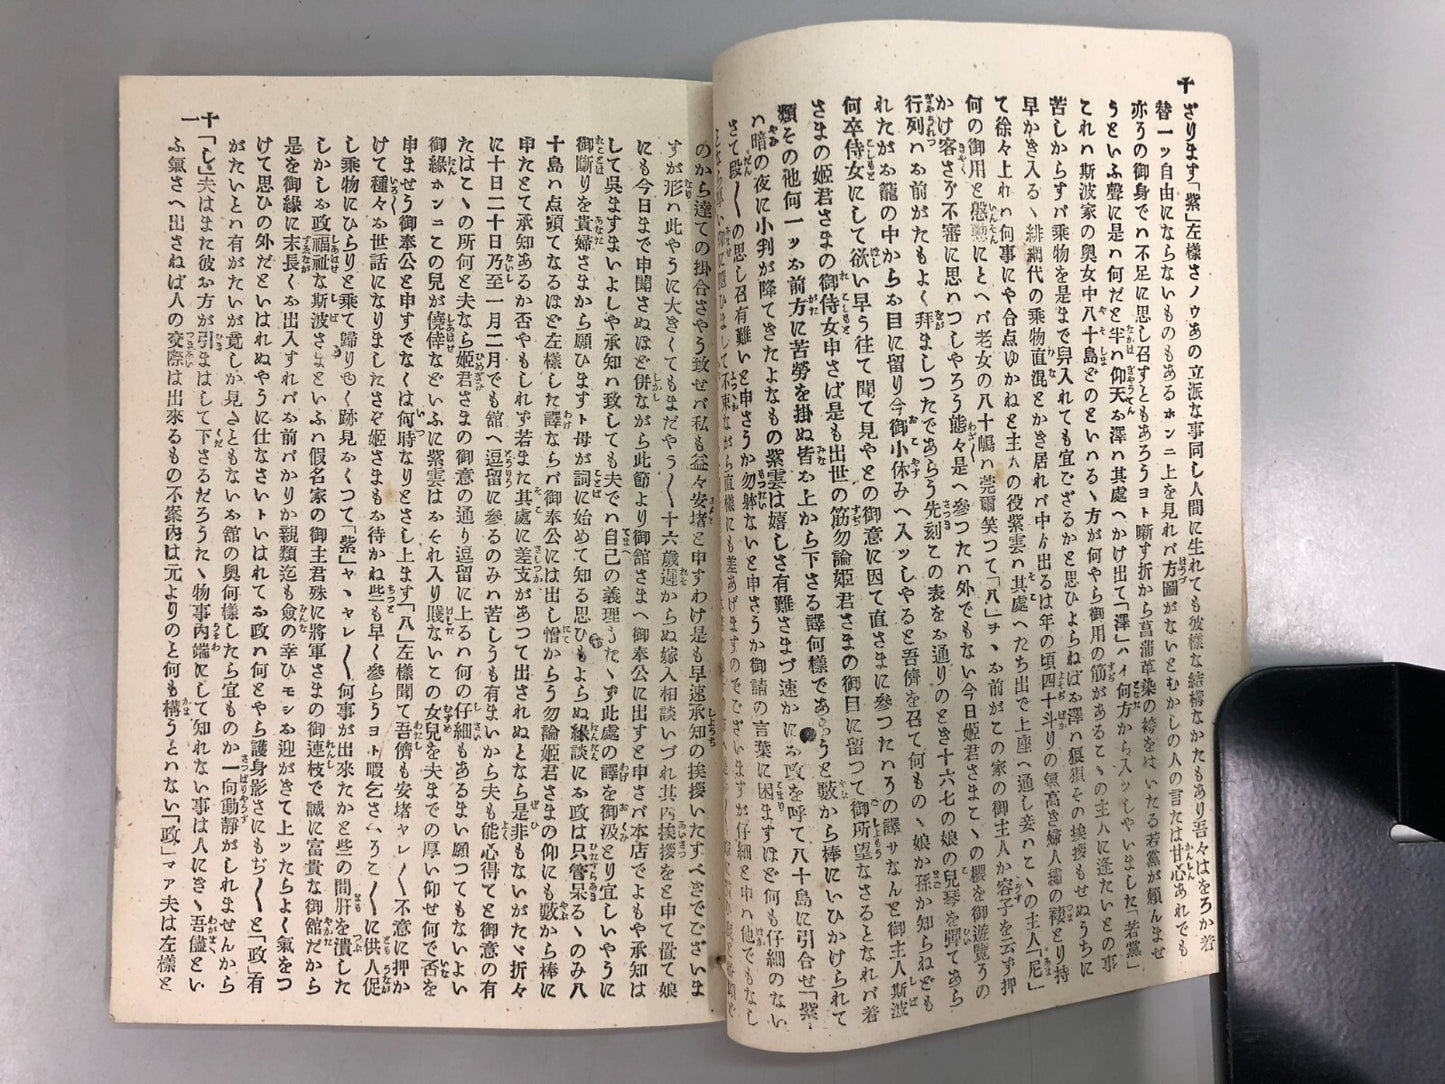 十
ざります「紫」左樣さノウあの立派な事同し人間に生れても彼樣な結構なかたもあり吾々はをろか若
替一ッ自由にならないものもあるホンニ上を見れバ方圖がないとむかしの人の言たは甘心あれでも
亦ろの御身でハ不足に思し召すともあろうヨト噺す折から菖蒲草染の袴をはいたる若黨が頼んませ
うといふ聲に是ハ何だと半ハ仰天お澤ハ其處へかけ出て「澤」ハイ何方から入ッしやいました「若黨」
これハ斯波家の奧女中八十島どのといへる方が何やら御用の筋があるこヽの主人に逢たいとの事
苦しからずバ乘物を是まで舁入れても宜ござるかと思ひよらねばお澤ハ狼狽その挨拶もせぬうちに
早かき入るヽ緋網代の乘物直混とかき居れバ中ゟ出るは年の頃四十斗りの氣高き婦人裲の褄とり持
て徐々上れハ何事にや合点ゆかねと主人の役紫雲ハ其處へたち出で上座へ通し妾ハこヽの主人「尼」
何の御用と慇懃にとへバ老女の八十嶋ハ莞爾笑つて「八」チヽお前がこの家の御主人か容子を云ず押
かけ客さぞ不審に思ハつしやろう態々是へ參つたハ外でもない今日姬君さまこヽの櫻を御遊覽ろの
行列ハお前がたもよく拜ましつたであらう先刻この表をお通りのとき十六七の娘の兒琴を彈てあら
れたがお龍の中からお目に留り今御小休みへ入ッしやると吾儕を召て何ものヽ娘か孫か知らねども
何卒侍女にして欲い早う往て聞て見やとの御意に因て直さまに參つたハろの譯サなんと御主人斯波
さまの姬君さまの御侍女申さば是も出世の筋勿論姬君さまの御目に留つて御所望なさるとなれバ着
類その他何一ッお前方に苦勞を掛ぬ皆お上から下さる譯何樣であらうと藪から棒にいひかけられて
ハ暗の夜に小判が降てきたよなもの紫雲は嬉しさ有難さまづ速かにお政を呼て八十島に引合せ「紫」
さて段〱の思し召有難いと申さうか勿躰ないと申さうか御請の言葉に困ますほど何も仔細のない
のから達ての掛合さやう致せバ私も益々安堵と申すわけ是も早速承知の挨拶いたすべきでございま
すが形ハ此やうに大きくてもまだやう〱十六歲遲からぬ嫁入相談いづれ其內挨拶をと申て置て娘
にも今日まで申聞さぬほど併ながら此節より御館さまへ御奉公に出すと申さバ本店でよもや承知は
して吳ますまいよしや承知ハ致しても夫でハ自己の義理もたヽず此處の譯を御汲とり宜しいやうに
御斷りを貴婦さまから願ひますト母が詞に始めて知る思ひもよらぬ緣談にお政は只管呆るヽのみ八
十島ハ点頭てなるほど左樣した譯ならバ御奉公には出し惜からう勿論姬君さまの仰にも藪から棒に
申たとて承知あるか否やもしれず若また其處に差支があつて出されぬとなら是非もないがたヾ折々
に十日二十日乃至一月二月でも舘へ逗留に參るのみハ苦しうも有まいから夫も能心得てと御意の有
たはこヽの所何と夫なら姬君さまの御意の通り逗留に上るハ何の仔細もあるまい願つてもないよい
御緣ホンニこの兒が僥倖などいふに紫雲はおそれ入り賤ないこの女兒を夫までの厚い仰せ何で否を
申ませう御奉公と申すでなくは何時なりとさし上ます「八」左樣聞て吾儕も安堵ャレ〱不意に押か
けて種々お世話になりましたさぞ姬さまもお待かね些も早く參らうヨト暇乞さへろこ〱に供人促
し乘物にひらりと乘て歸りゆく跡見おくつて「紫」ャヽャレ〱何事が出來たかと些の間肝を潰した
しかしお政福祉な斯波さまといふハ假名家の御主君殊に將軍さまの御連枝で誠に富貴な御館だから
是を御緣に末長くお出入すれバお前バかりか親類迄も僉の幸ひモシお迎がきて上ッたらよく氣をつ
けて思ひの外だといはれぬやうに仕なさいトいはれてお政ハ何とやら護身影さにもぢ〱と「政」有
がたいとハ有がたいが竟しか見さともないお舘の奧何樣したら宜ものか一向動靜がしれませんから
「しざ」夫はまた彼お方が引まはして下さるだろうたヽ物事內端にして知れない事は人にきヽ吾儘とい
ふ氣さへ出さねば人の交際は出來るもの不案內は元よりのと何も構うとハない「政」マァ夫は左樣と
十一